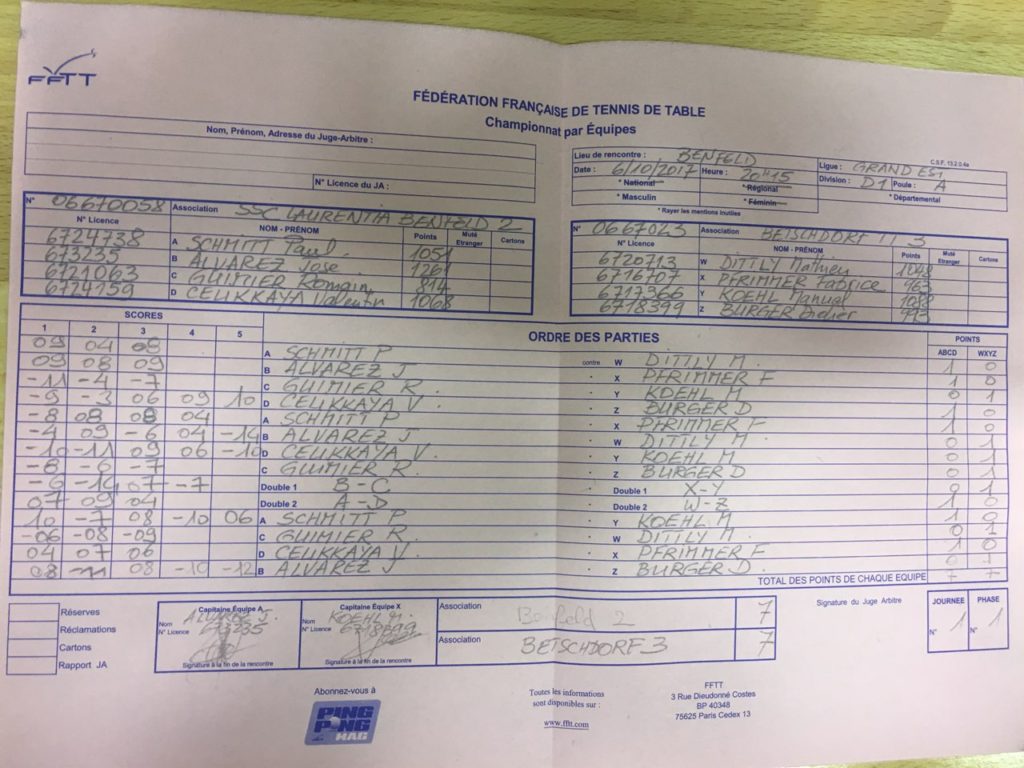 FFTT
FÉDÉRATION FRANÇAISE DE TENNIS DE TABLE
Championnat par Équipes
C.S.F. 13.2.0.4a
Nom, Prénom, Adresse du Juge-Arbitre :
N° Licence du JA :
Lieu de rencontre : BENFELD
Date : 6/10/2017 Heure : 20H15
* National * Régional
* Masculin * Féminin
* Rayer les mentions inutiles
Ligue : GRAND EST
Division : D1 Poule : A
* Départemental
N° 06670058 Association SSC LAURENTIA BENFELD 2
N° Licence NOM - PRÉNOM Points Muté Etranger Cartons
6724738 A SCHMITT Paul 1051
673235 B ALVAREZ José 1261
6721063 C GUIMIER Romain 814
6724159 D CELIKKAYA Valentin 1068
N° 0667023 Association BETSCHDORF TT 3
N° Licence NOM - PRÉNOM Points Muté Etranger Cartons
6720713 W DITTLY 1048
6716707 X PFRIMMER Fabrice 963
6717366 Y KOEHL Manuel 1088
6718399 Z BURGER Didier 993
SCORES ORDRE DES PARTIES POINTS
1 2 3 4 5 ABCD WXYZ
09 04 08 A SCHMITT P contre W DITTLY M. 1 0
09 08 09 B ALVAREZ J " X PFRIMMER F 1 0
-11 -4 -7 C GUIMIER R. " Y KOEHL M 0 1
-9 -3 06 09 10 D CELIKKAYA V. " Z BURGER D 1 0
-8 08 08 04 A SCHMITT P " X PFRIMMER F 1 0
-4 09 -6 04 -14 B ALVAREZ J " W DITTLY M. 0 1
-10 -11 09 06 -10 D CELIKKAYA V. " Y KOEHL M 0 1
-8 -6 -7 C GUIMIER R. " Z BURGER D 0 1
-6 -14 07 -7 Double 1 B - C Double 1 X - Y 0 1
07 09 04 Double 2 A - D Double 2 W - Z 1 0
10 -7 08 -10 06 A SCHMITT P " Y KOEHL M 1 0
-06 -08 -09 C GUIMIER R. " W DITTLY M. 0 1
04 07 06 D CELIKKAYA V. " X PFRIMMER F 1 0
08 -11 08 -10 -12 B ALVAREZ J " Z BURGER D. 0 1
TOTAL DES POINTS DE CHAQUE EQUIPE 7 7
Réserves
Réclamations
Cartons
Rapport JA
Capitaine Équipe A
Nom ALVAREZ J.
N° Licence 673235
Signature à la fin de la rencontre
Capitaine Équipe X
Nom KOEHL M.
N° Licence 6718399
Signature à la fin de la rencontre
Association Benfeld 2 7
Association BETSCHDORF 3 7
Signature du Juge Arbitre
JOURNÉE PHASE
N° 1 N° 1
Abonnez-vous à
PING PONG MAG
Toutes les informations
sont disponibles sur :
www.fftt.com
FFTT
3 Rue Dieudonné Costes
BP 40348
75625 Paris Cedex 13